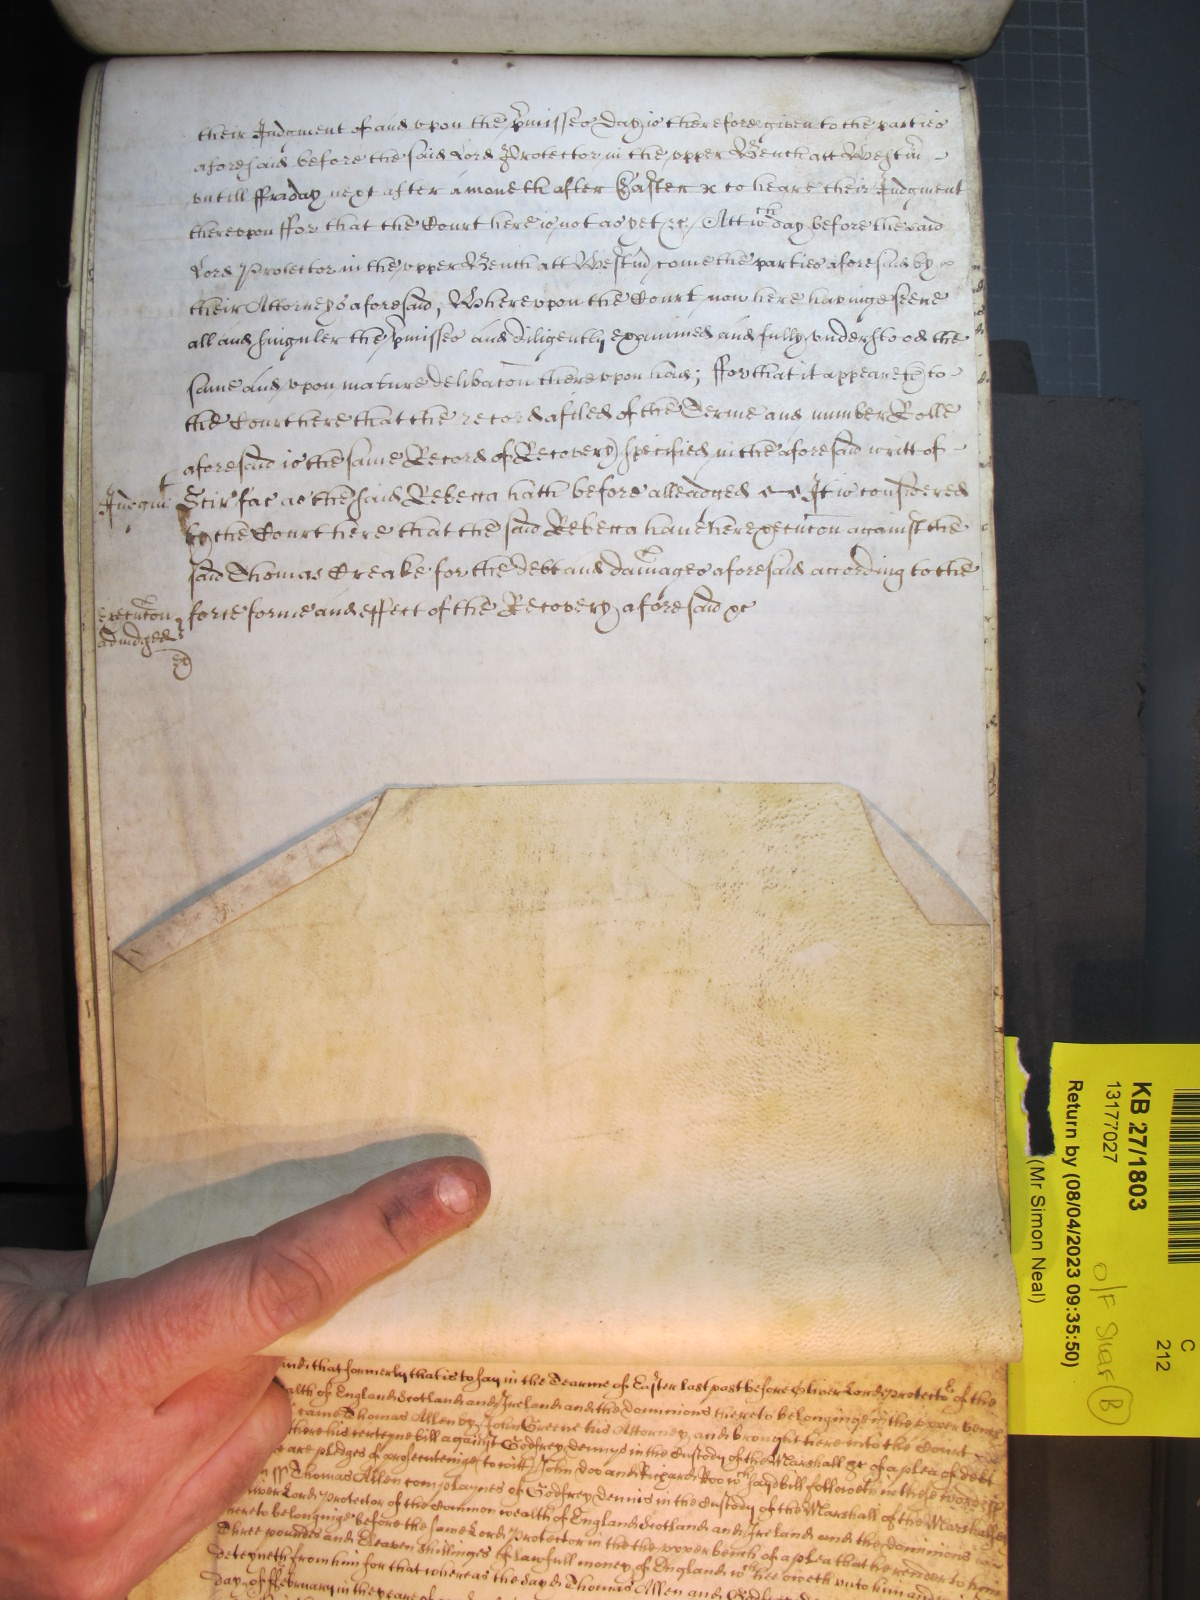 their Judgment of and vpon the p̃misses Day is therefore given to the parties
aforesaid before the said Lord Protector in the vpper Bench att Westm̃
vntill ffraday next after a moneth after Easter x to heare their Judgment
therevpon ffor that the Court here is not as yet &c / Att wch day before the said
Lord Protector in the vpper Bench att Westm̃ come the parties aforesaid by
their Attorneys aforesaid, Wherevpon the Court now here havinge seene
all and singuler the p̃misses and diligently examined and fully vnderstood the
same and vpon mature delibacõn there vpon had; ffor that it appeareth to
the Court here that the record afiled of the Terme and number Rolle
aforesaid is the same Record of Recovery specified in the aforesaid writt of
Judgmt Scir fac as the said Rebecca hath before alleadged It is considered
by the Court here that the said Rebecca haue here execucõn against the
said Thomas Creake for the debt and damages aforesaid according to the
execucõn force forme and effect of the Recovery aforesaid &c
adiudged
KB 27/1803
13177027
Return by (08/04/2023 09:35:50)
(Mr Simon Neal)
C
212
O/F Shelf B
that formerly that is to say in the Tearme of Easter last past before Oliver Lord Protector of the
alth of England Scotland and Ireland and the dominions thereto belonginge in the vpper bench
came Thomas Allen by John Greene his Attorney, and brought here into the Court
there his certeyne bill against Godfrey dennys in the Custody of the Marshall &c of a plea of debt
are pledges of prosecuteinge to witt John doo and Richard Roo wch said bill followeth in these words ss
ss Thomas Allen complaynes of Godfrey dennis in the Custody of the Marshall of the Marshalsea
Lord Protector of the Common wealth of England Scotland and Ireland and the dominions
thereto belonginge before the same Lord Protector in the vpper bench of a plea that he render to him
Three poundes and Eleaven shillinges of lawfull money of England wch hee oweth vnto him and
deteyneth from him for that whereas the said Thomas Allen and
day of ffebruary in the yeare of